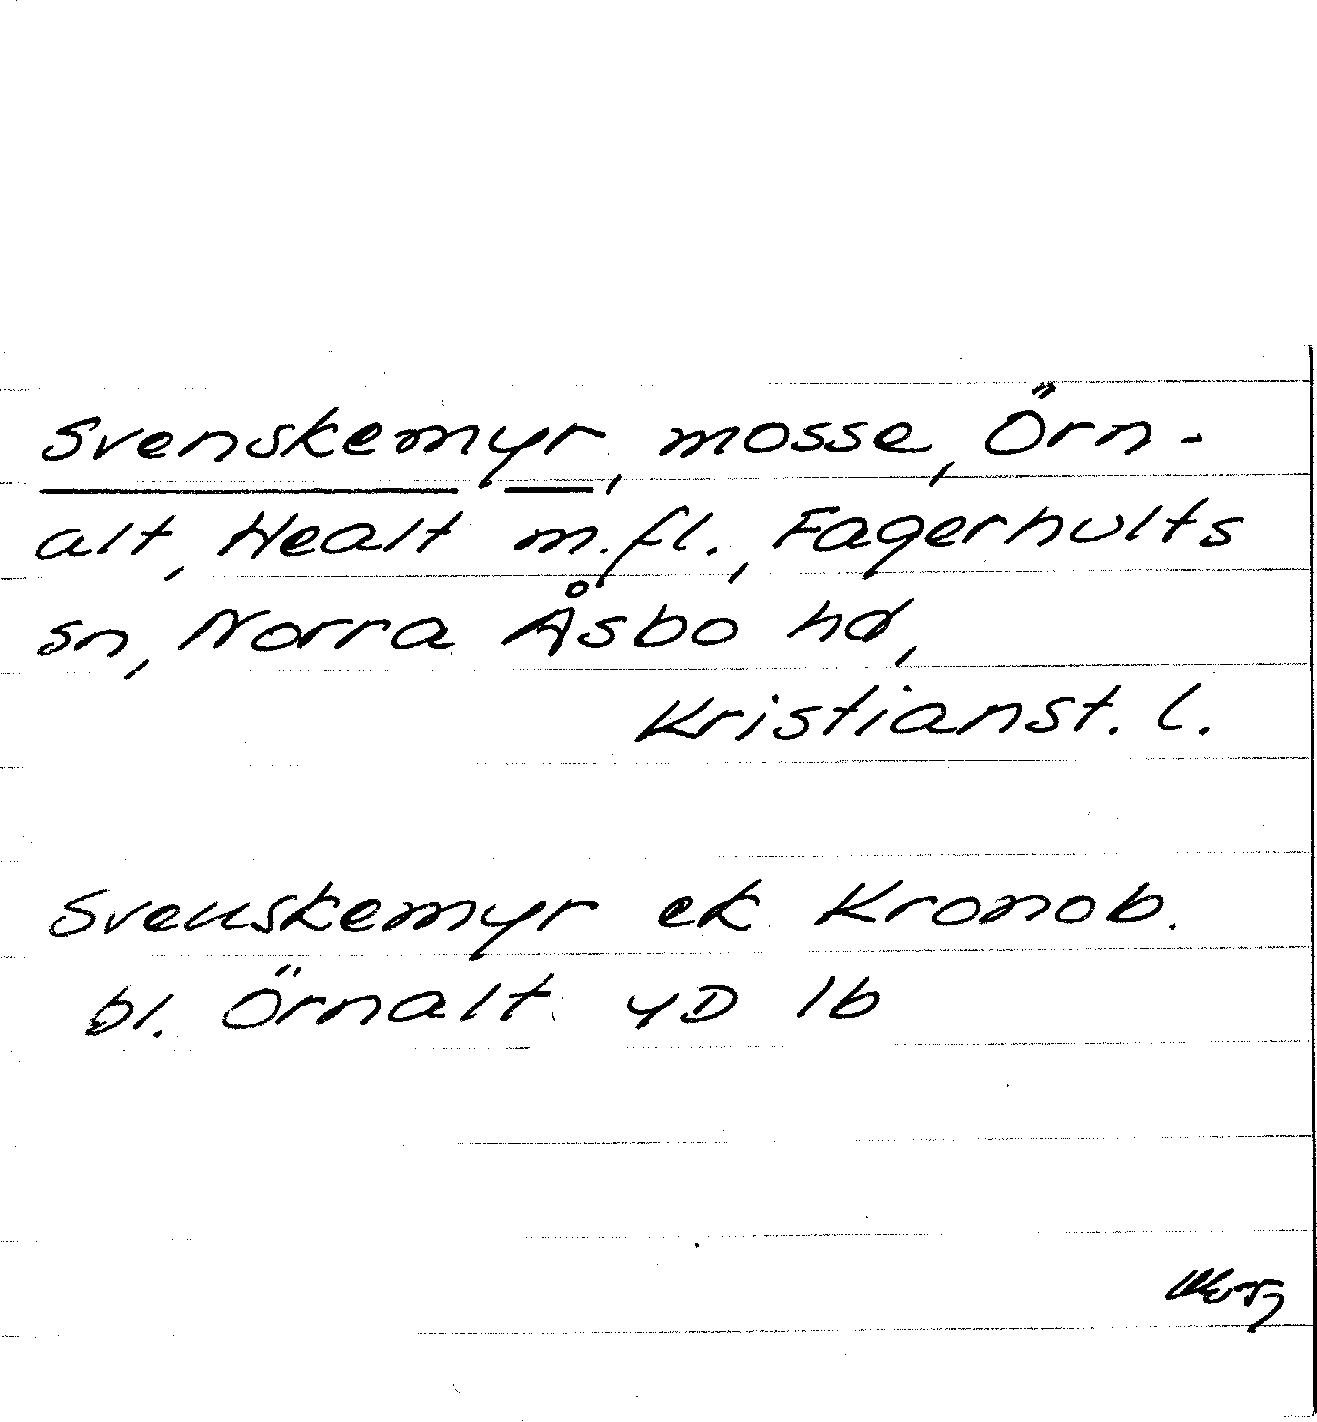 Svenskemyr, mosse, Örn-
alt, Healt m.fl., Fagerhults
sn, Norra Åsbo hd,
Kristianst. l.
Svenskemyr ek Kronob.
bl. Örnalt 4D 1b